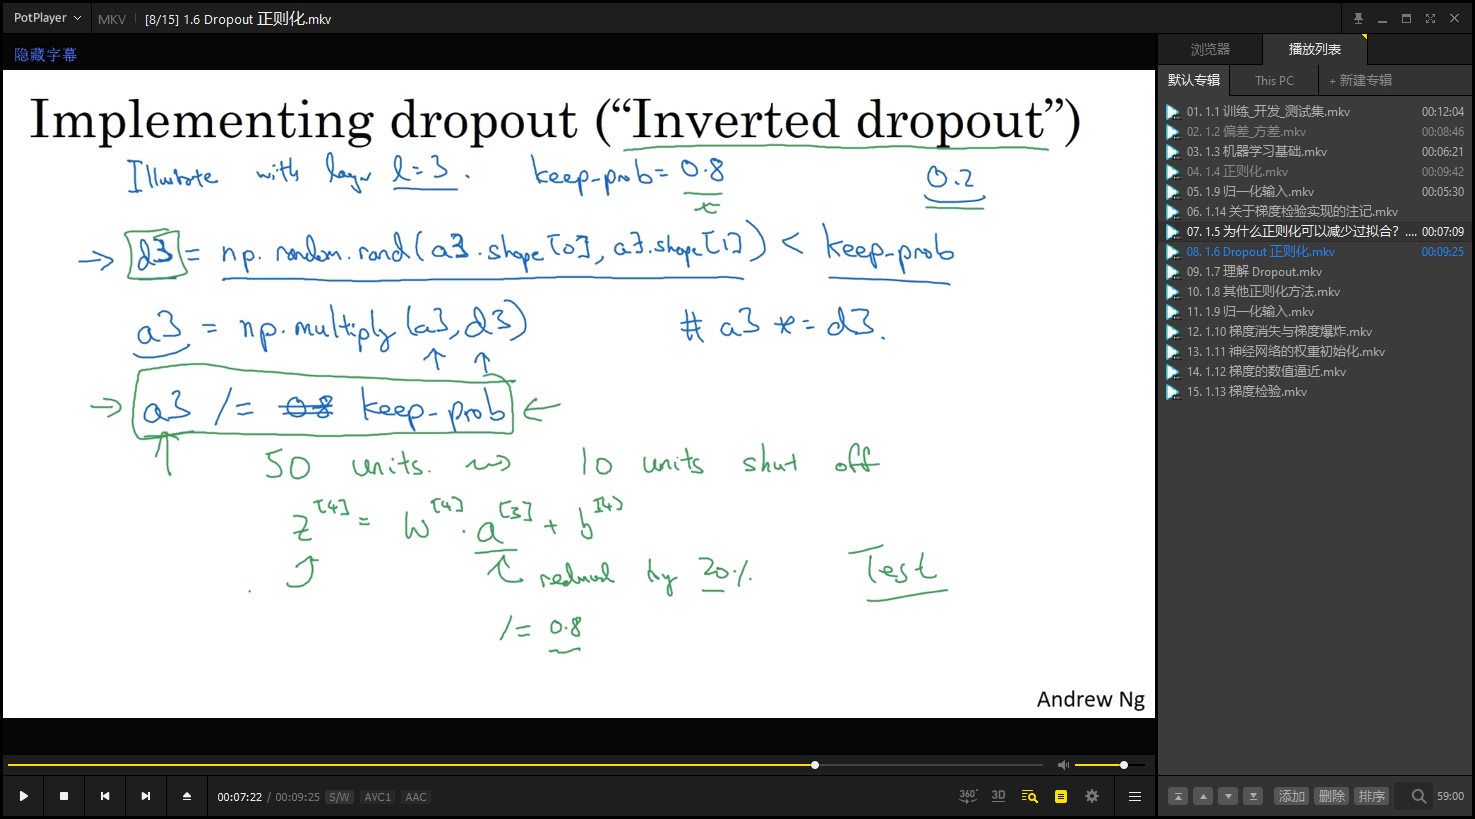 PotPlayer MKV [8/15] 1.6 Dropout 正则化.mkv
隐藏字幕
Implementing dropout (“Inverted dropout”)
Illustrate with layer l=3. keep-prob= 0.8 0.2
x
→ d3 = np.random.rand(a3.shape[0], a3.shape[1]) < keep-prob
a3 = np.multiply(a3, d3) # a3 *= d3.
→ a3 /= 0.8 keep-prob ←
50 units. ⇝ 10 units shut off
z[4] = W[4] · a[3] + b[4]
reduced by 20%. Test
/= 0.8
Andrew Ng
00:07:22 / 00:09:25 S/W AVC1 AAC
360° 3D
浏览器 播放列表
默认专辑 This PC + 新建专辑
01. 1.1 训练_开发_测试集.mkv 00:12:04
02. 1.2 偏差_方差.mkv 00:08:46
03. 1.3 机器学习基础.mkv 00:06:21
04. 1.4 正则化.mkv 00:09:42
05. 1.9 归一化输入.mkv 00:05:30
06. 1.14 关于梯度检验实现的注记.mkv
07. 1.5 为什么正则化可以减少过拟合？.... 00:07:09
08. 1.6 Dropout 正则化.mkv 00:09:25
09. 1.7 理解 Dropout.mkv
10. 1.8 其他正则化方法.mkv
11. 1.9 归一化输入.mkv
12. 1.10 梯度消失与梯度爆炸.mkv
13. 1.11 神经网络的权重初始化.mkv
14. 1.12 梯度的数值逼近.mkv
15. 1.13 梯度检验.mkv
添加 删除 排序 59:00